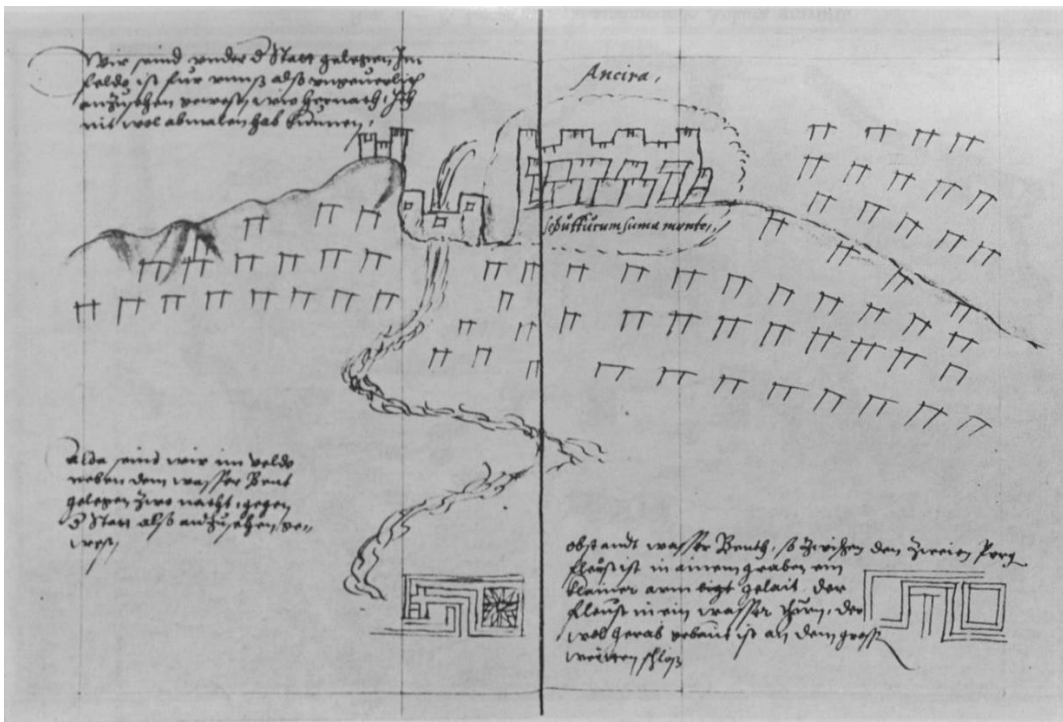 Wir seind under d Statt gelegen Im
felde ist fur unnß alß ungeuerlich
anzusehen gewest, wie hernach, Ich
nit wol abmalen hab kunnen,
Ancira,
in suma monte,
Alda seind wir im velde
neben dem wasser Bent
gelegen zwo nacht, gegen
d Statt alß anzusehen ge-
west,
obstandt wasser Benth, so zwischen den zweien Perg
fleüst ist in ainem graben ein
klainer arm gelait der
fleüst in ein wasser thurn, der
wol herab gebaut ist an dem
schloß